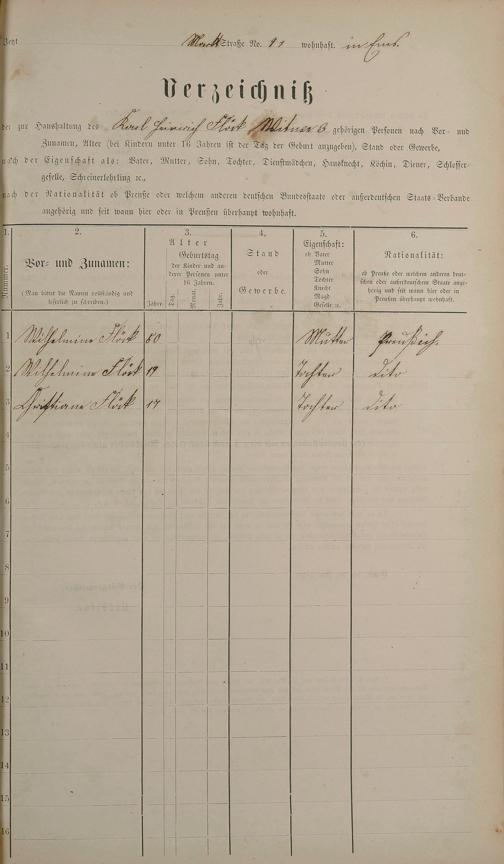 Jetzt Markt Straße No. 11 wohnhaft. in Ems.
Verzeichniß
der zur Haushaltung des Karl Heinrich Flöck gehörigen Personen nach Vor- und
Zunamen, Alter (bei Kindern unter 16 Jahren ist der Tag der Geburt anzugeben), Stand oder Gewerbe,
nach der Eigenschaft als: Vater, Mutter, Sohn, Tochter, Dienstmädchen, Hausknecht, Köchin, Diener, Schlosser-
geselle, Schreinerlehrling ꝛc.,
nach der Nationalität ob Preuße oder welchem anderen deutschen Bundesstaate oder außerdeutschen Staats-Verbande
angehörig und seit wann hier oder in Preußen überhaupt wohnhaft.
1. 2. 3. 4. 5. 6.
Nummer.
Vor- und Zunamen:
(Man bittet die Namen vollständig und
leserlich zu schreiben.)
Alter
Geburtstag
der Kinder und an-
derer Personen unter
16 Jahren.
Jahre. Tag. Monat. Jahr.
Stand
oder
Gewerbe.
Eigenschaft:
ob Vater
Mutter
Sohn
Tochter
Knecht
Magd
Geselle ꝛc.
Nationalität:
ob Preuße oder welchem anderen deut-
schen oder außerdeutschen Staate ange-
hörig und seit wann hier oder in
Preußen überhaupt wohnhaft.
1 Wilhelmine Flöck 60 Mutter Preußisch.
2 Wilhelmine Flöck 19 Tochter dito
3 Christiane Flöck 17 Tochter dito
4
5
6
7
8
9
10
11
12
13
14
15
16